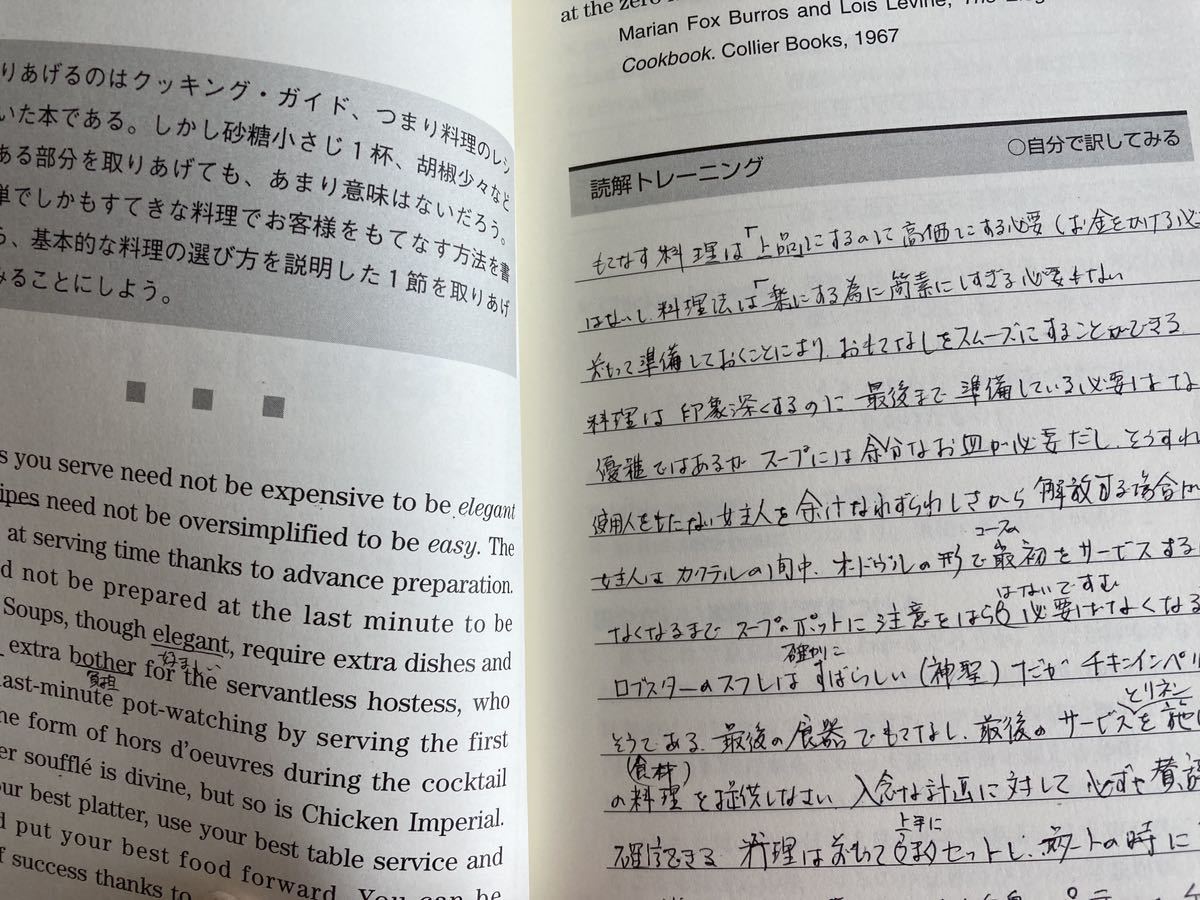 りあげるのはクッキング・ガイド、つまり料理のレシ
いた本である。しかし砂糖小さじ1杯、胡椒少々など
ある部分を取りあげても、あまり意味はないだろう。
単でしかもすてきな料理でお客様をもてなす方法を書
う、基本的な料理の選び方を説明した1節を取りあげ
みることにしよう。
s you serve need not be expensive to be elegant
ipes need not be oversimplified to be easy. The
at serving time thanks to advance preparation.
d not be prepared at the last minute to be
Soups, though elegant, require extra dishes and
好ましい
extra bother for the servantless hostess, who
負担
last-minute pot-watching by serving the first
he form of hors d'oeuvres during the cocktail
er soufflé is divine, but so is Chicken Imperial.
our best platter, use your best table service and
d put your best food forward. You can be
f success thanks to
at the zero
Marian Fox Burros and Lois Levine, The
Cookbook. Collier Books, 1967
読解トレーニング
○自分で訳してみる
もてなす料理は「上品」にするのに高価にする必要(お金をかける必
はないし、料理法は「楽にする為に簡素にしすぎる必要もない
前もって準備しておくことにより、おもてなしをスムーズにすることができる
料理は印象深くするのに最後まで準備している必要はな
優雅ではあるが スープには余分なお皿が必要だし、そうすれ
使用人を持たない女主人を余計なわずらわしさから解放する場合
コースの
女主人はカクテルの間中、オードヴルの形で最初をサービスする
はないですむ
なくなるまで スープのポットに注意をはらう必要はなくなる
確かに
ロブスターのスフレはすばらしい(神聖)だが チキンインペリ
とリネン
そうである。最後の食器でもてなし、最後のサービスを施
(食材)
の料理を提供しなさい 入念な計画に対して 必ずや賛
上手に
確信できる 料理は前もってセットし、の時に